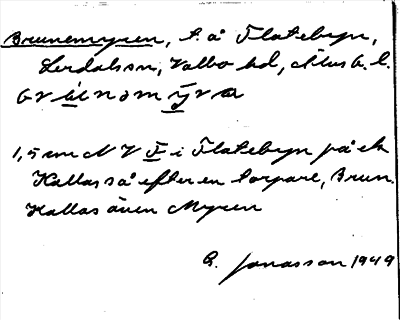 Brunemyren, t. å Flatebyn,
Lerdalssn, Valbo hd, Älvsb. l.
1,5 mm N V F i Flatebyn på ek
Kallas så efter en torpare, Brun.
Kallas även Myren
G. Jonasson 1949